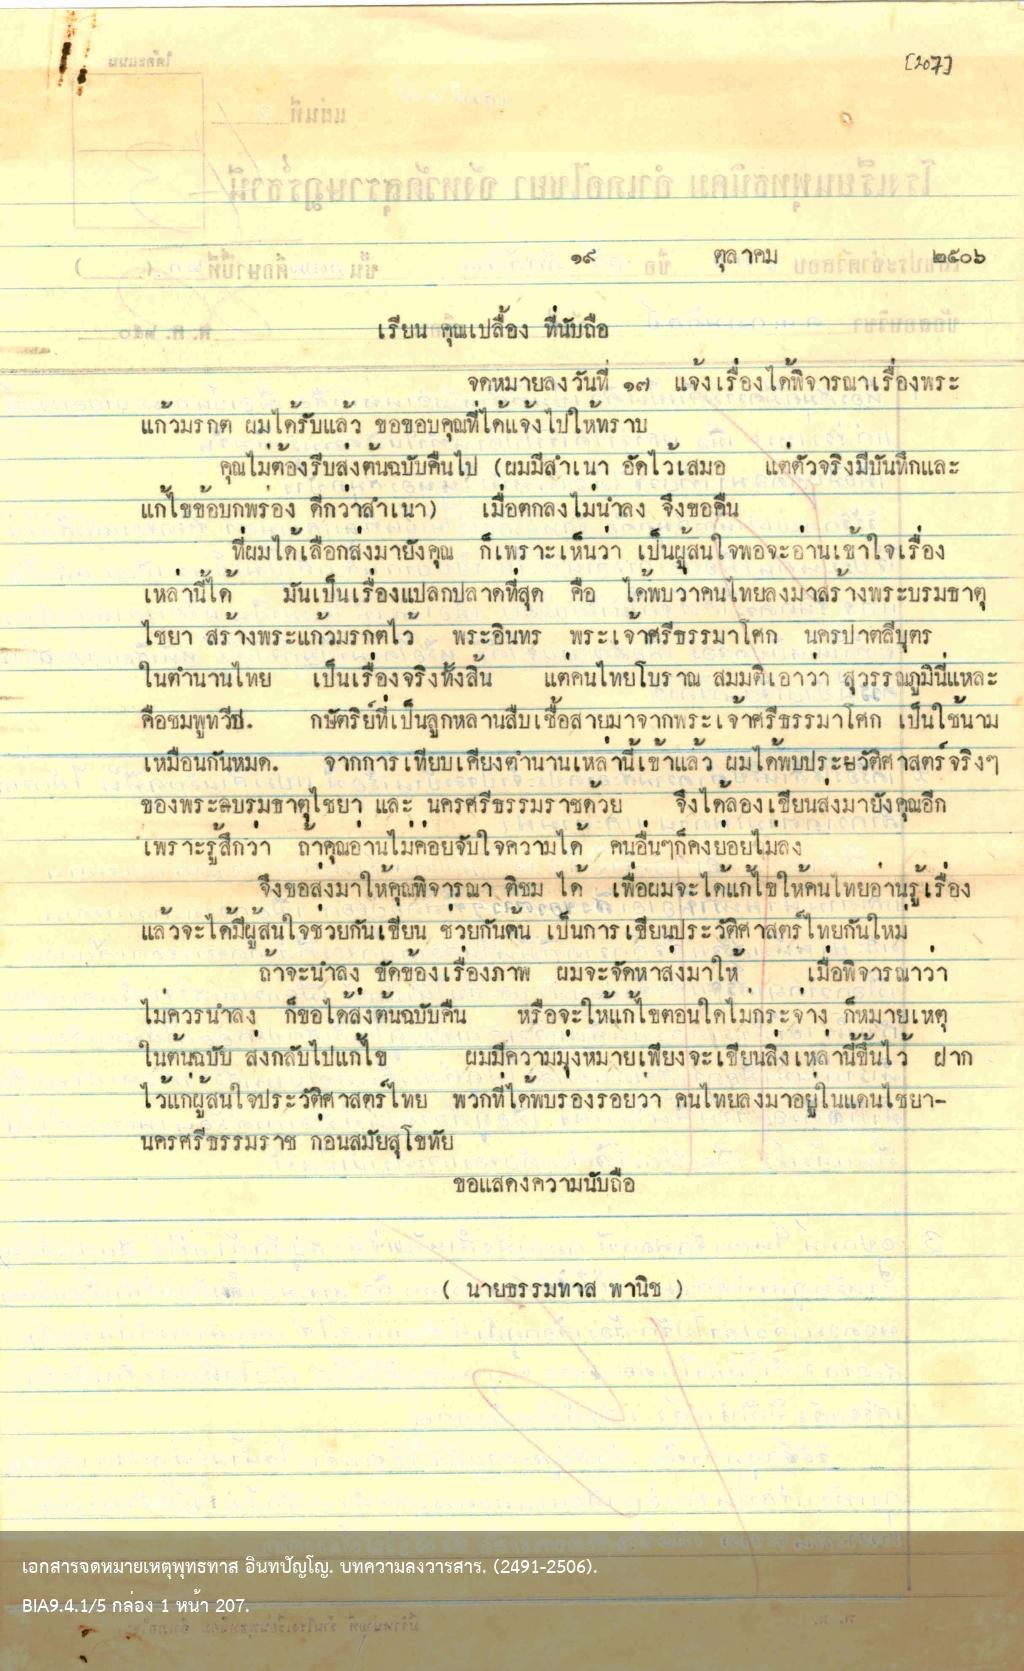 [207]
๑๙ ตุลาคม ๒๕๐๖
เรียน คุณเปลื้อง ที่นับถือ
จดหมายลงวันที่ ๑๗ แจ้งเรื่องได้พิจารณาเรื่องพระ
แก้วมรกต ผมได้รับแล้ว ขอขอบคุณที่ได้แจ้งไปให้ทราบ
คุณไม่ต้องรีบส่งต้นฉบับคืนไป (ผมมีสำเนา อัดไว้เสมอ แต่ตัวจริงมีบันทึกและ
แก้ไขข้อบกพร่อง ดีกว่าสำเนา) เมื่อตกลงไม่นำลง จึงขอคืน
ที่ผมได้เลือกส่งมายังคุณ ก็เพราะเห็นว่า เป็นผู้สนใจพอจะอ่านเข้าใจเรื่อง
เหล่านี้ได้ มันเป็นเรื่องแปลกปลาดที่สุด คือ ได้พบว่าคนไทยลงมาสร้างพระบรมธาตุ
ไชยา สร้างพระแก้วมรกตไว้ พระอินทร พระเจ้าศรีธรรมาโศก นครปาตลีบุตร
ในตำนานไทย เป็นเรื่องจริงทั้งสิ้น แต่คนไทยโบราณ สมมติเอาว่า สุวรรณภูมินี่แหละ
คือชมพูทวีป. กษัตริย์ที่เป็นลูกหลานสืบเชื้อสายมาจากพระเจ้าศรีธรรมาโศก เป็นใช้นาม
เหมือนกันหมด. จากการเทียบเคียงตำนานเหล่านี้เข้าแล้ว ผมได้พบประวัติศาสตร์จริงๆ
ของพระบรมธาตุไชยา และ นครศรีธรรมราชด้วย จึงได้ลองเขียนส่งมายังคุณอีก
เพราะรู้สึกว่า ถ้าคุณอ่านไม่ค่อยจับใจความได้ คนอื่นๆก็คงย่อยไม่ลง
จึงขอส่งมาให้คุณพิจารณา ติชม ได้ เพื่อผมจะได้แก้ไขให้คนไทยอ่านรู้เรื่อง
แล้วจะได้มีผู้สนใจช่วยกันเขียน ช่วยกันค้น เป็นการเขียนประวัติศาสตร์ไทยกันใหม่
ถ้าจะนำลง ขัดข้องเรื่องภาพ ผมจะจัดหาส่งมาให้ เมื่อพิจารณาว่า
ไม่ควรนำลง ก็ขอได้ส่งต้นฉบับคืน หรือจะให้แก้ไขตอนใดไม่กระจ่าง ก็หมายเหตุ
ในต้นฉบับ ส่งกลับไปแก้ไข ผมมีความมุ่งหมายเพียงจะเขียนสิ่งเหล่านี้ขึ้นไว้ ฝาก
ไว้แก่ผู้สนใจประวัติศาสตร์ไทย พวกที่ได้พบรองรอยว่า คนไทยลงมาอยู่ในแดนไชยา-
นครศรีธรรมราช ก่อนสมัยสุโขทัย
ขอแสดงความนับถือ
( นายธรรมทาส พานิช )
เอกสารจดหมายเหตุพุทธทาส อินทปัญโญ. บทความลงวารสาร. (2491-2506).
BIA9.4.1/5 กล่อง 1 หน้า 207.